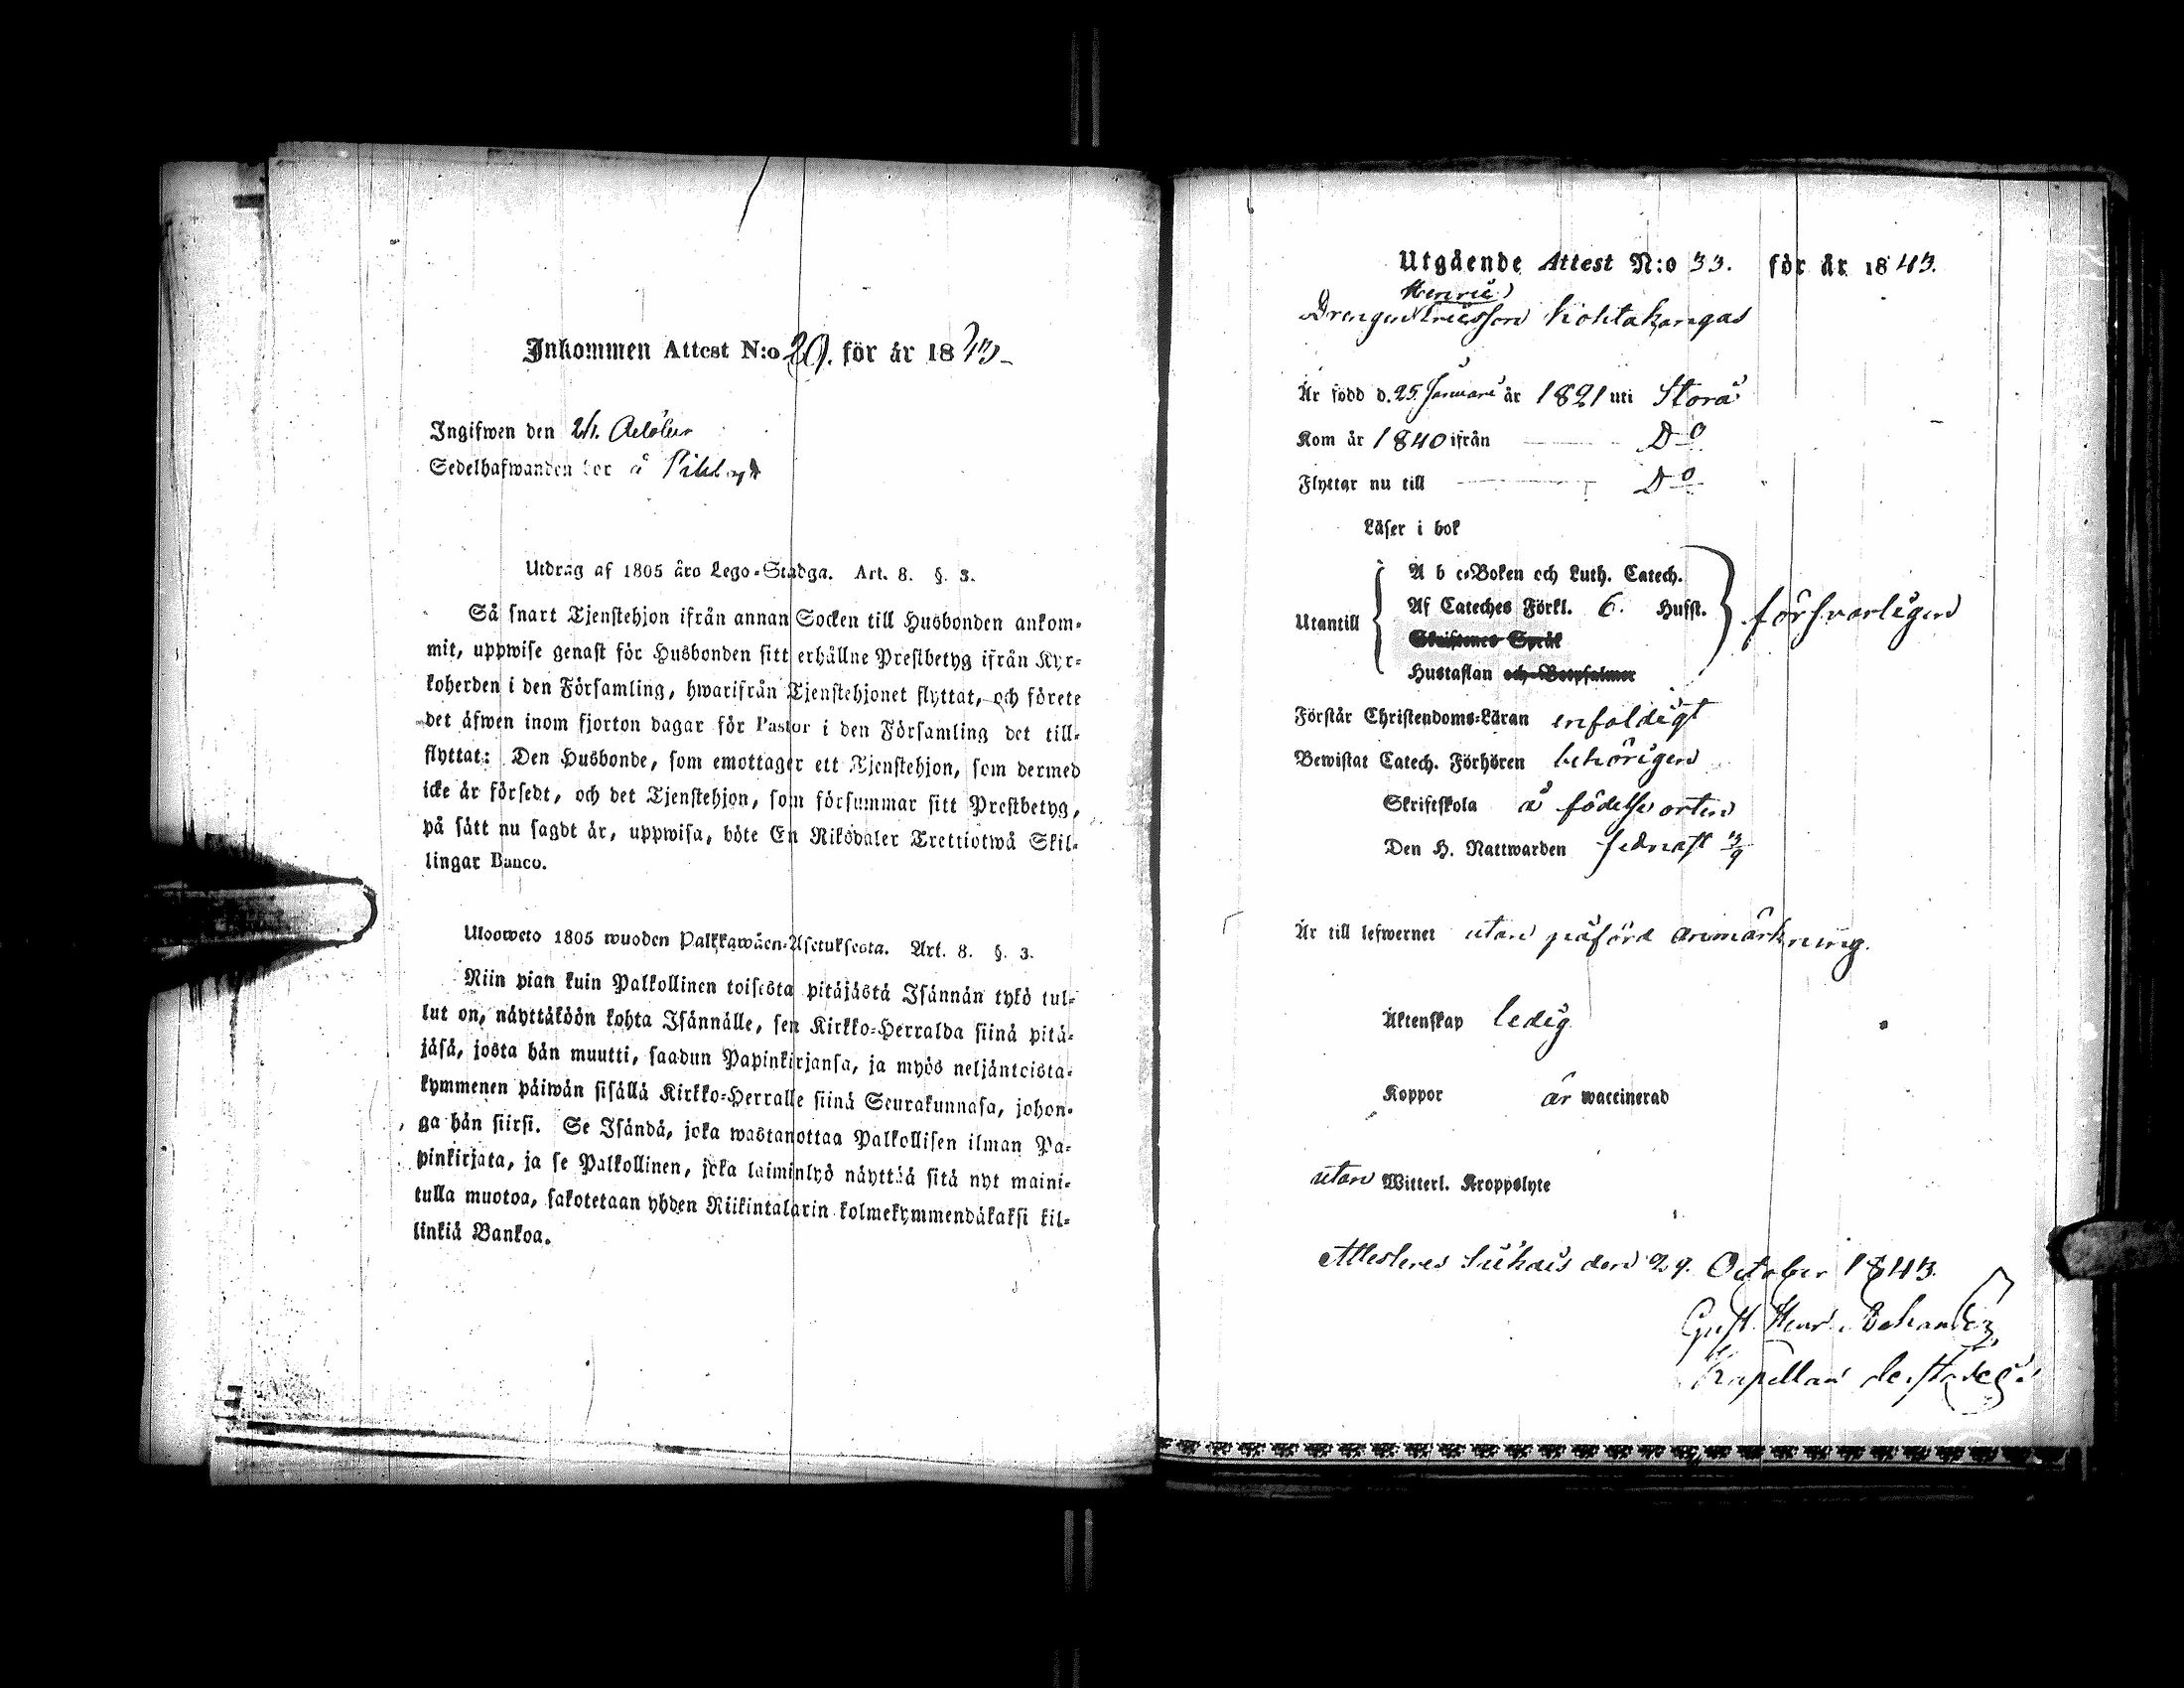 Inkommen Attest N:o 20. för år 1843
Ingifwen den 21. October
Sedelhafwanden bor å
Utdrag af 1805 åro Lego-Stadga. Art. 8. §. 3.
Så snart Tjenstehjon ifrån annan Socken till Husbonden ankom-
mit, uppwise genast för Husbonden sitt erhållne Prestbetyg ifrån Kyr-
koherden i den Församling, hwarifrån Tjenstehjonet flyttat, och förete
det äfwen inom fjorton dagar för Pastor i den Församling det till-
flyttat: Den Husbonde, som emottager ett Tjenstehjon, som dermed
icke är försedt, och det Tjenstehjon, som försummar sitt Prestbetyg,
på sätt nu sagdt är, uppwisa, böte En Riksdaler Trettiotwå Skil-
lingar Banco.
Uloosweto 1805 wuoden Palkkawäen-Asetuksesta. Art. 8. §. 3.
Niin pian kuin Palkollinen toisesta pitäjästä Isännän tykö tul-
lut on, näyttäköön kohta Isännälle, sen Kirkko-Herralda siinä pitä-
jäsä, josta hän muutti, saadun Papinkirjansa, ja myös neljäntoista-
kymmenen päiwän sisällä Kirkko-Herralle siinä Seurakunnasa, johon-
ga hän siirsi. Se Isändä, joka wastanottaa Palkollisen ilman Pa-
pinkirjata, ja se Palkollinen, joka laiminlyö näyttää sitä nyt maini-
tulla muotoa, sakotetaan yhden Riikintalarin kolmekymmendäkaksi kil-
linkiä Bankoa.
Utgående Attest N:o 33. för år 1843.
Henric
Drengen Ericsson Kohtakangas
Är född d. 25. Januari år 1821 uti Storå
Kom år 1840 ifrån D:o
Flyttar nu till D:o
Läser i bok
A b c-Boken och Luth. Catech.
Utantill Af Cateches Förkl. 6. Hufst. försvarligen
Skriftenes Språk
Hustaflan och Botpsalmer
Förstår Christendoms-Läran enfaldigt
Bewistat Catech. Förhören behörigen
Skriftskola å födelse orten
Den H. Nattwarden sednast 13/9
Är till lefwernet utan påförd anmärkning.
Äktenskap ledig
Koppor är waccinerad
utan Witterl. Kroppslyte
Attesteras den 29. October 1843.
Gust. Henr.
Kapellan